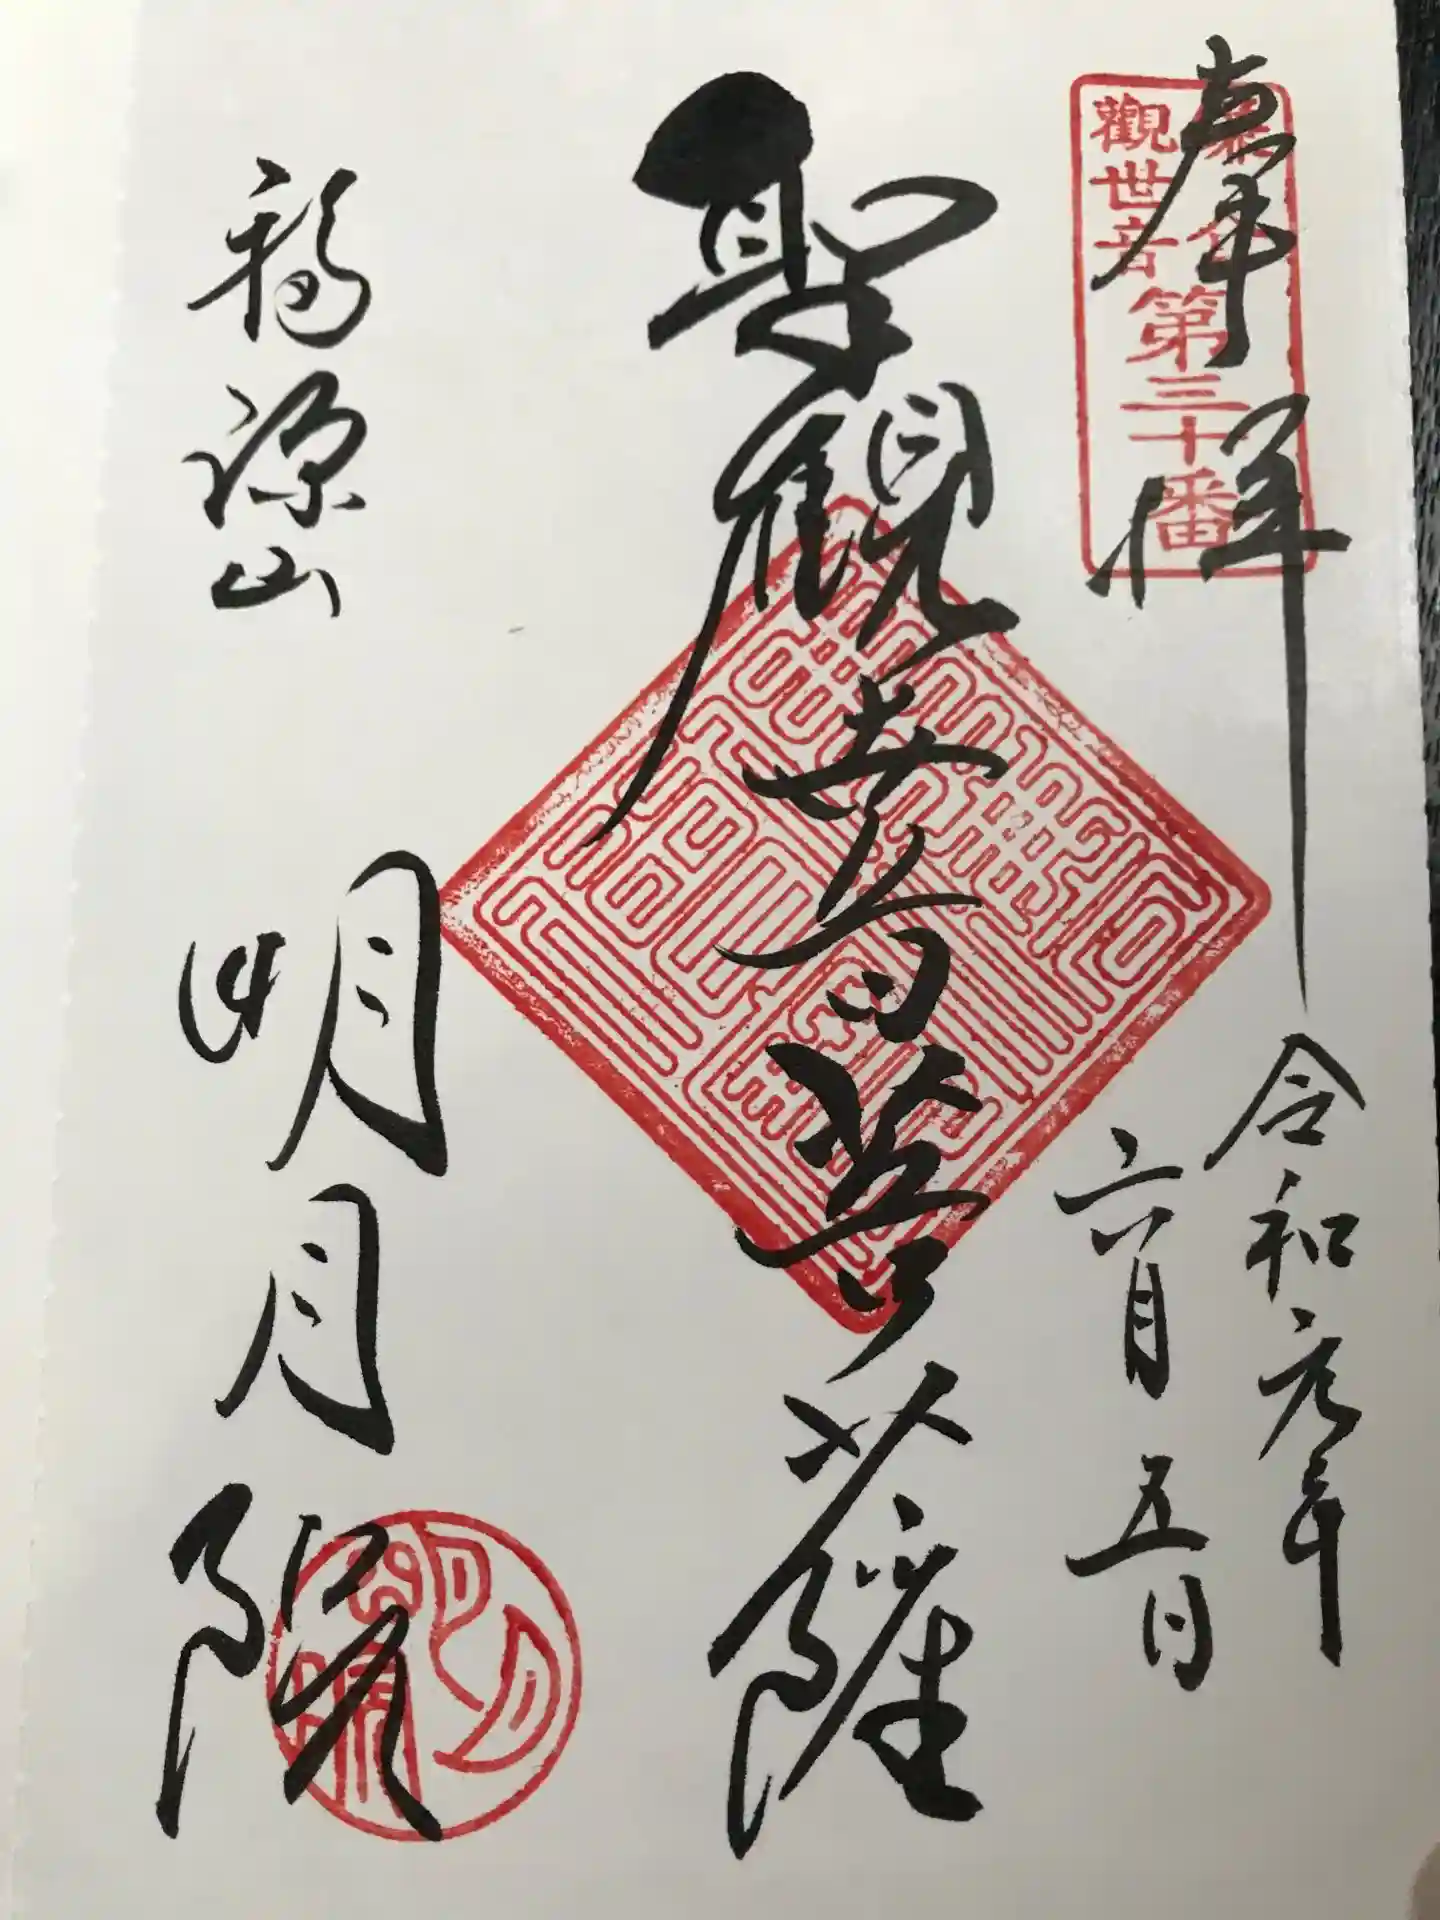 奉拝
鎌倉
觀世音
第三十番
令和元年
六月五日
聖観世音菩薩
福源山
明月院